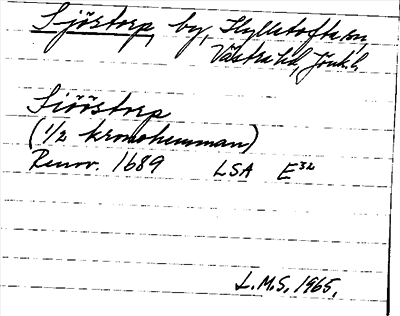 Sjöstorp, by, Hylletofta sn,
Västra hd, Jönk. l.
Siööstorp
(1/2 kronohemman)
Renov. 1689 LSA E³²
L.M.S. 1965.